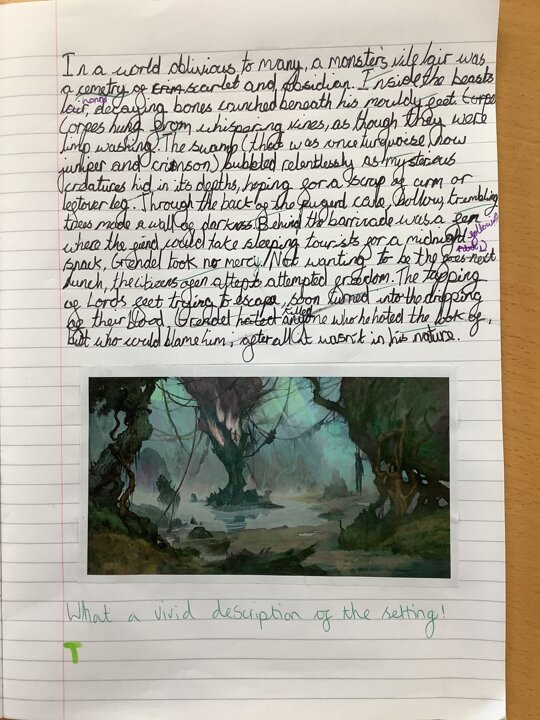 In a world oblivious to many, a monster's vile lair was
a cemetry of scarlet and obsidian. Inside the beasts
lair, decaying bones crunched beneath his mouldy feet.
Corpes hung from whispering vines, as though they were
limp washing. The swamp (that was once turquoise, now
juniper and crimson) bubbled relentlessly as mysterous
creatures hid in its depths, hoping for a scrap of arm or
leftover leg. Through the back of the putrid cave, hollow, trembling
trees made a wall of darkness. Behind the barricade was a
where the fiend could take sleeping tourists for a midnight
snack, Grendel took no mercy. Not wanting to be the next
lunch, the citizens attempted freedom. The tapping
of Lords feet trying to escape, soon turned into the dripping
of their blood, Grendel killed anyone who he hated the look of,
but who could blame him, after all it wasn't in his nature.
What a vivid description of the setting!
T